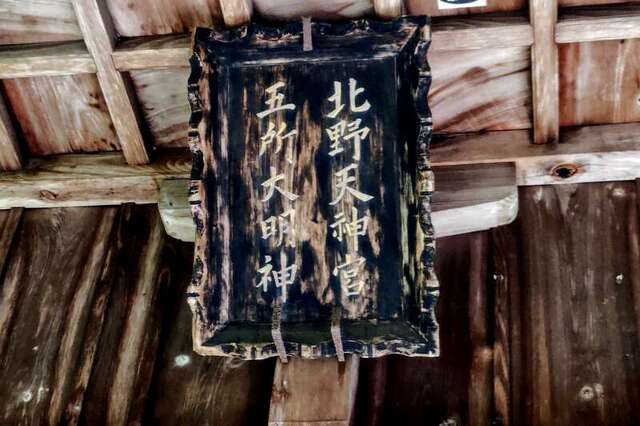 北野天神宮
五所大明神